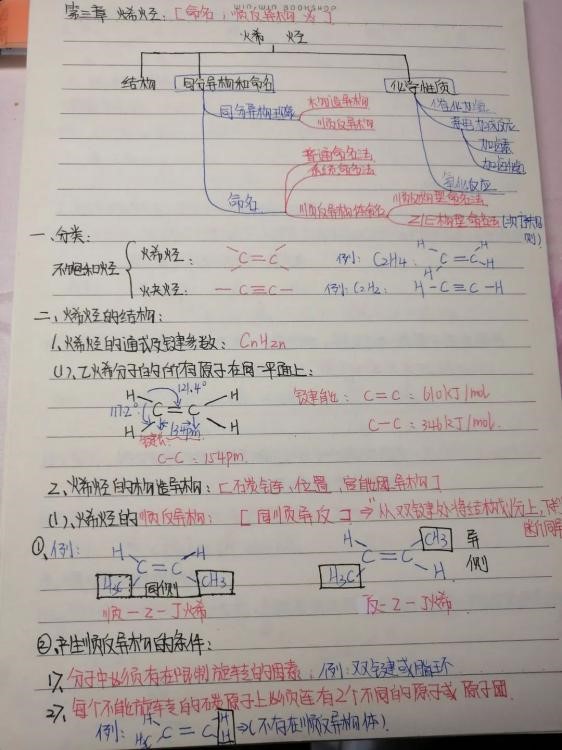 第三章 烯烃：[命名，顺反异构 为]
WIN-WIN BOOKSHOP
烯 烃
结构 同分异构和命名 化学性质
同分异构现象 构造异构
顺反异构
催化加氢
亲电加成反应
加卤素
加卤化氢
氧化反应
命名
普通命名法
系统命名法
顺反异构体命名 顺反构型命名法
Z/E构型命名法(次序规则)
一、分类：
不饱和烃
烯烃： C=C 例：C2H4： H H C=C H H
炔烃： —C≡C— 例：C2H2： H-C≡C-H
二、烯烃的结构：
1、烯烃的通式及键参数：CnH2n
(1)、乙烯分子的所有原子在同一平面上：
121.4°
H H
117.2° C=C
H H
键长 134pm
C-C：154pm
键能：C=C：610kJ/mol
C-C：346kJ/mol.
2、烯烃的构造异构：[石炭链、位置、官能团异构]
(1)、烯烃的顺反异构：[同顺异反]⇒"从双键处将结构划分上,下
断同异
①、例： H H
C=C
H3C 同侧 CH3
顺-2-丁烯
CH3 异侧
C=C
H3C H
反-2-丁烯
②、产生顺反异构的条件：
1>、分子中必须有在限制旋转的因素，例：双键或脂环
2>、每个不能旋转的石炭原子上必须连有2个不同的原子或原子团
例： H H
H3C C=C H ⇒(不存在顺反异构体)